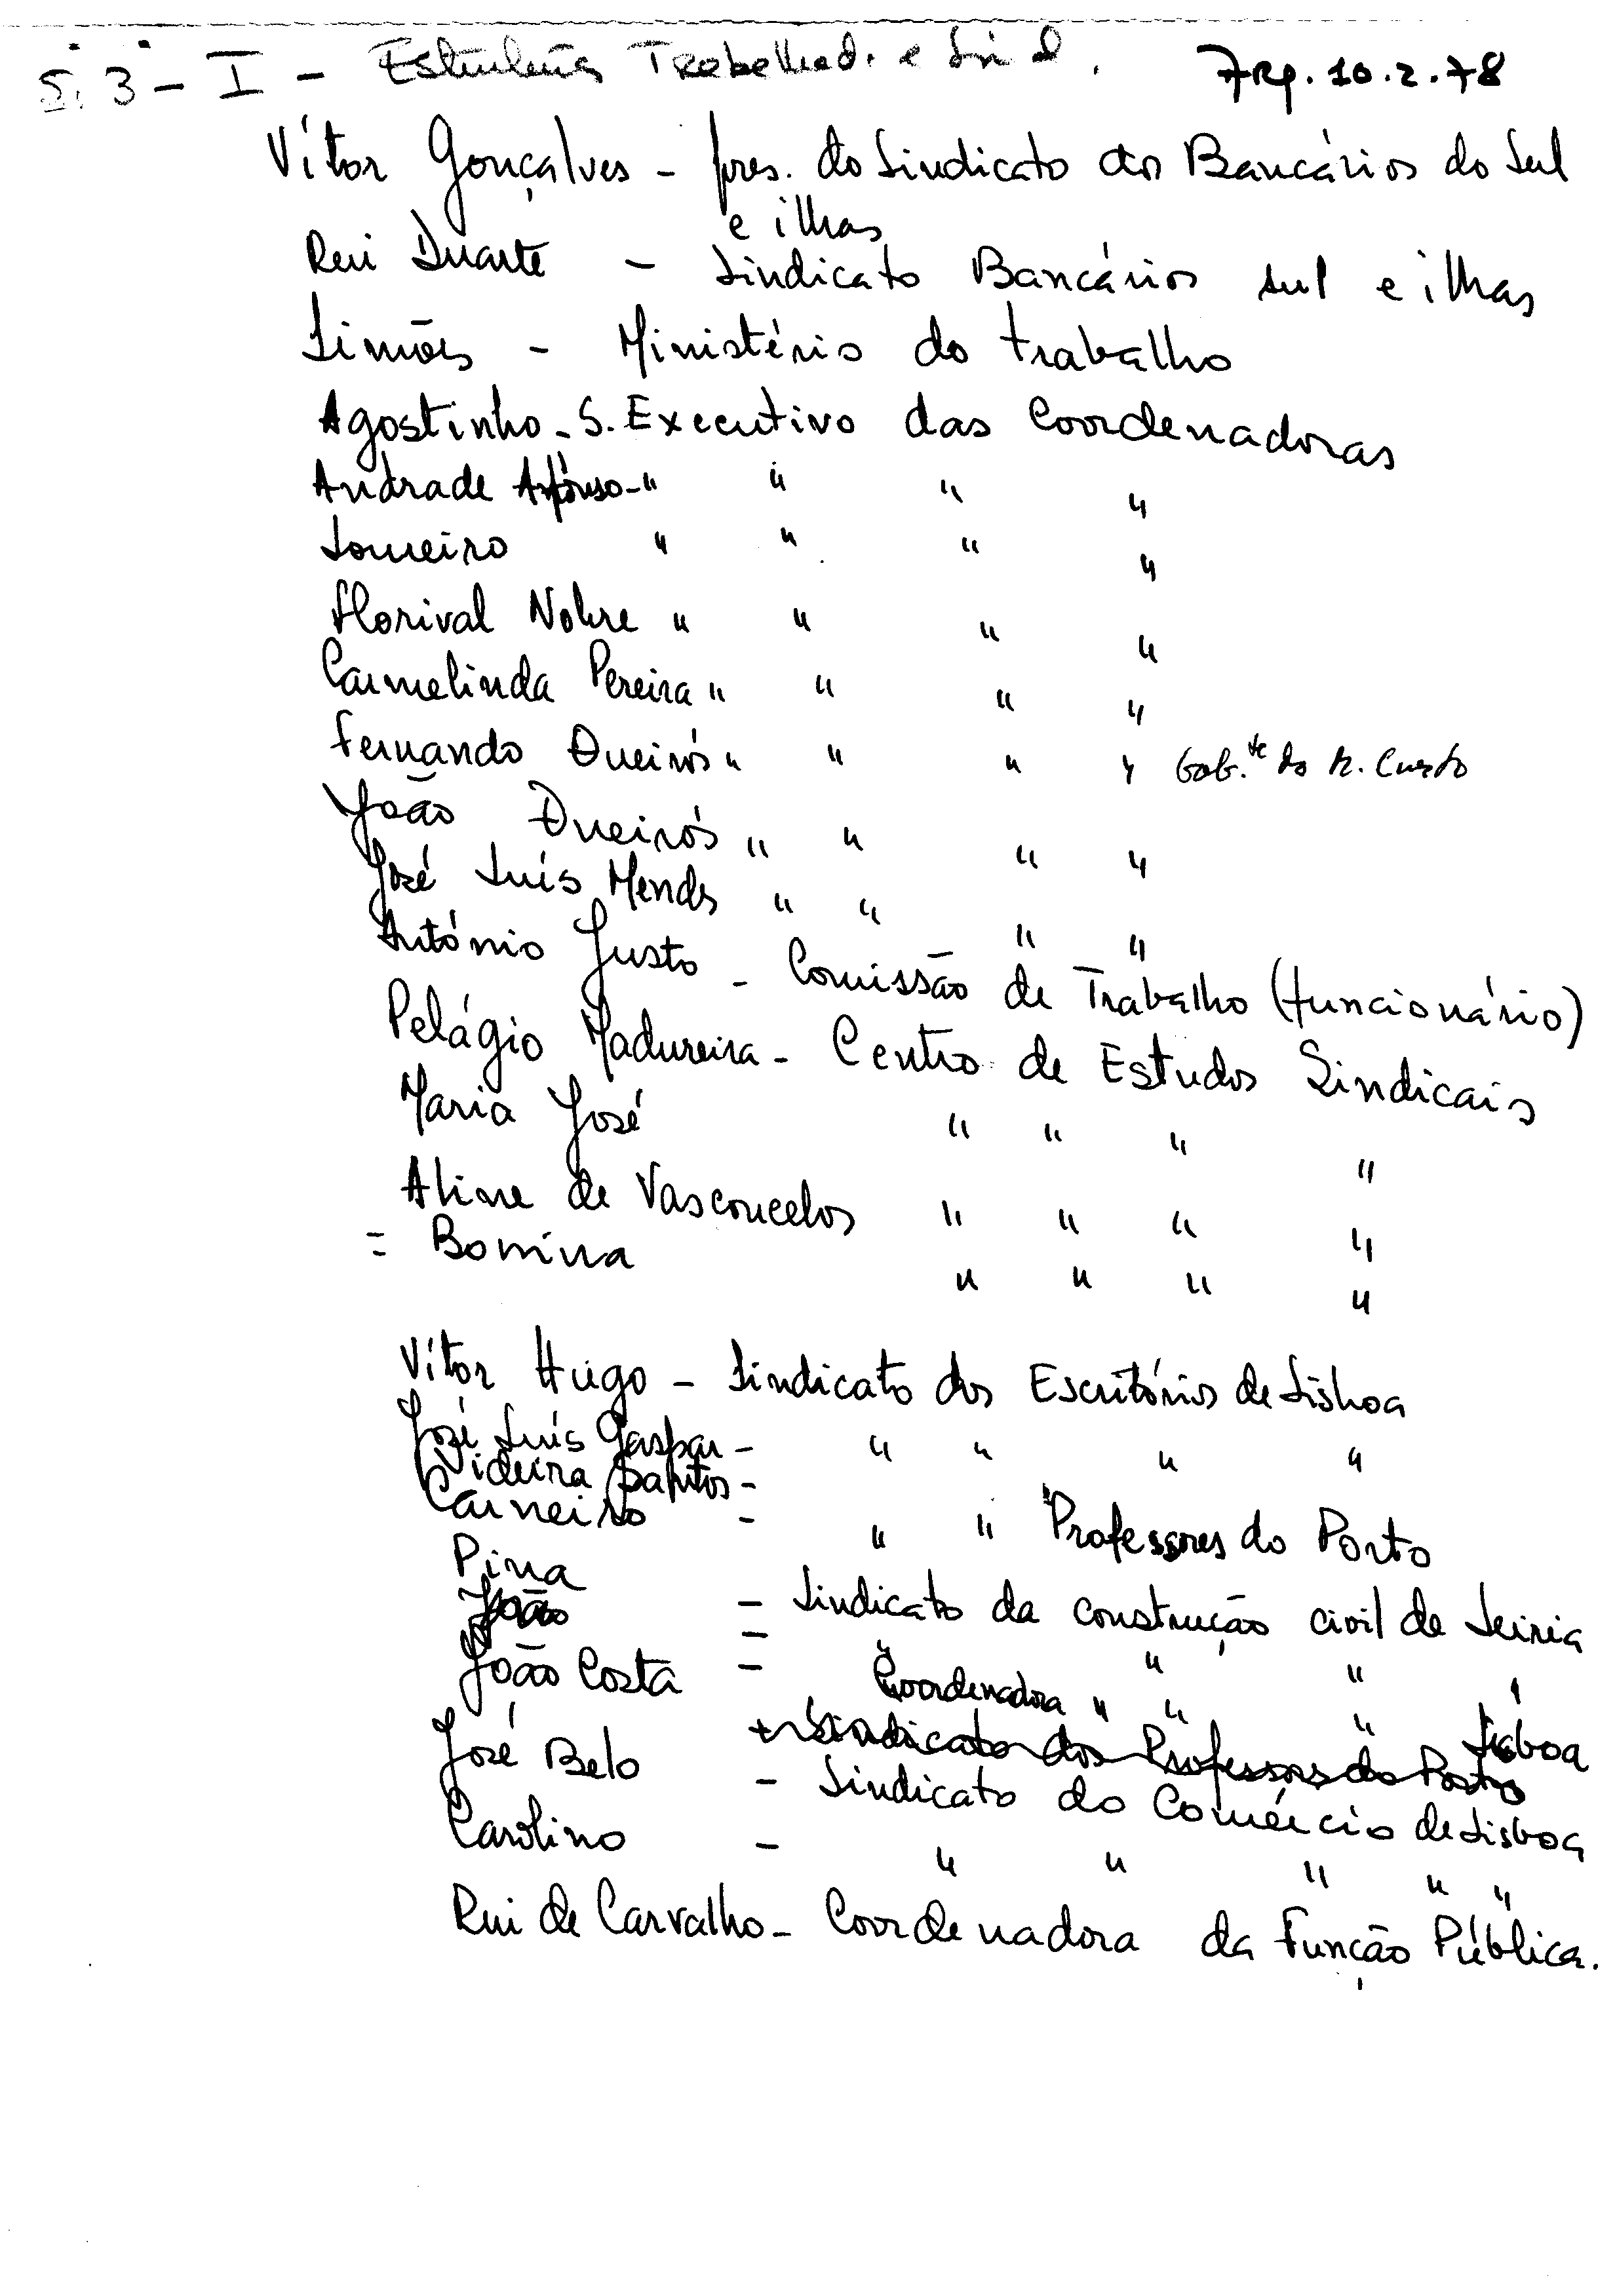 5.3 - I - Estruturas Trabalhad. e Sind.
Arq. 10.2.78
Vítor Gonçalves - pres. do Sindicato dos Bancários do Sul
e ilhas
Rui Duarte - Sindicato Bancários sul e ilhas
Simões - Ministério do trabalho
Agostinho - S. Executivo das Coordenadoras
Andrade Afonso - " " " "
Loureiro " " " "
Florival Nobre " " " "
Carmelinda Pereira " " " "
Fernando Queirós " " " " Gab.te do M. Curto
João Queirós " " " "
José Luís Mendes " " " "
António Justo - Comissão de Trabalho (funcionário)
Pelágio Madureira - Centro de Estudos Sindicais
Maria José " " " "
Aline de Vasconcelos " " " "
= " " " "
Vítor Hugo - Sindicato dos Escritórios de Lisboa
José Luís Gaspar - " " " "
Videira Santos -
Carneiro - " " Professores do Porto
Pina - Sindicato da construção civil de Leiria
João - " " "
João Costa - Coordenadora " " " Lisboa
Sindicato dos Professores do Porto
José Belo - Sindicato do Comércio de Lisboa
Carolino - " " " " "
Rui de Carvalho - Coordenadora da Função Pública.